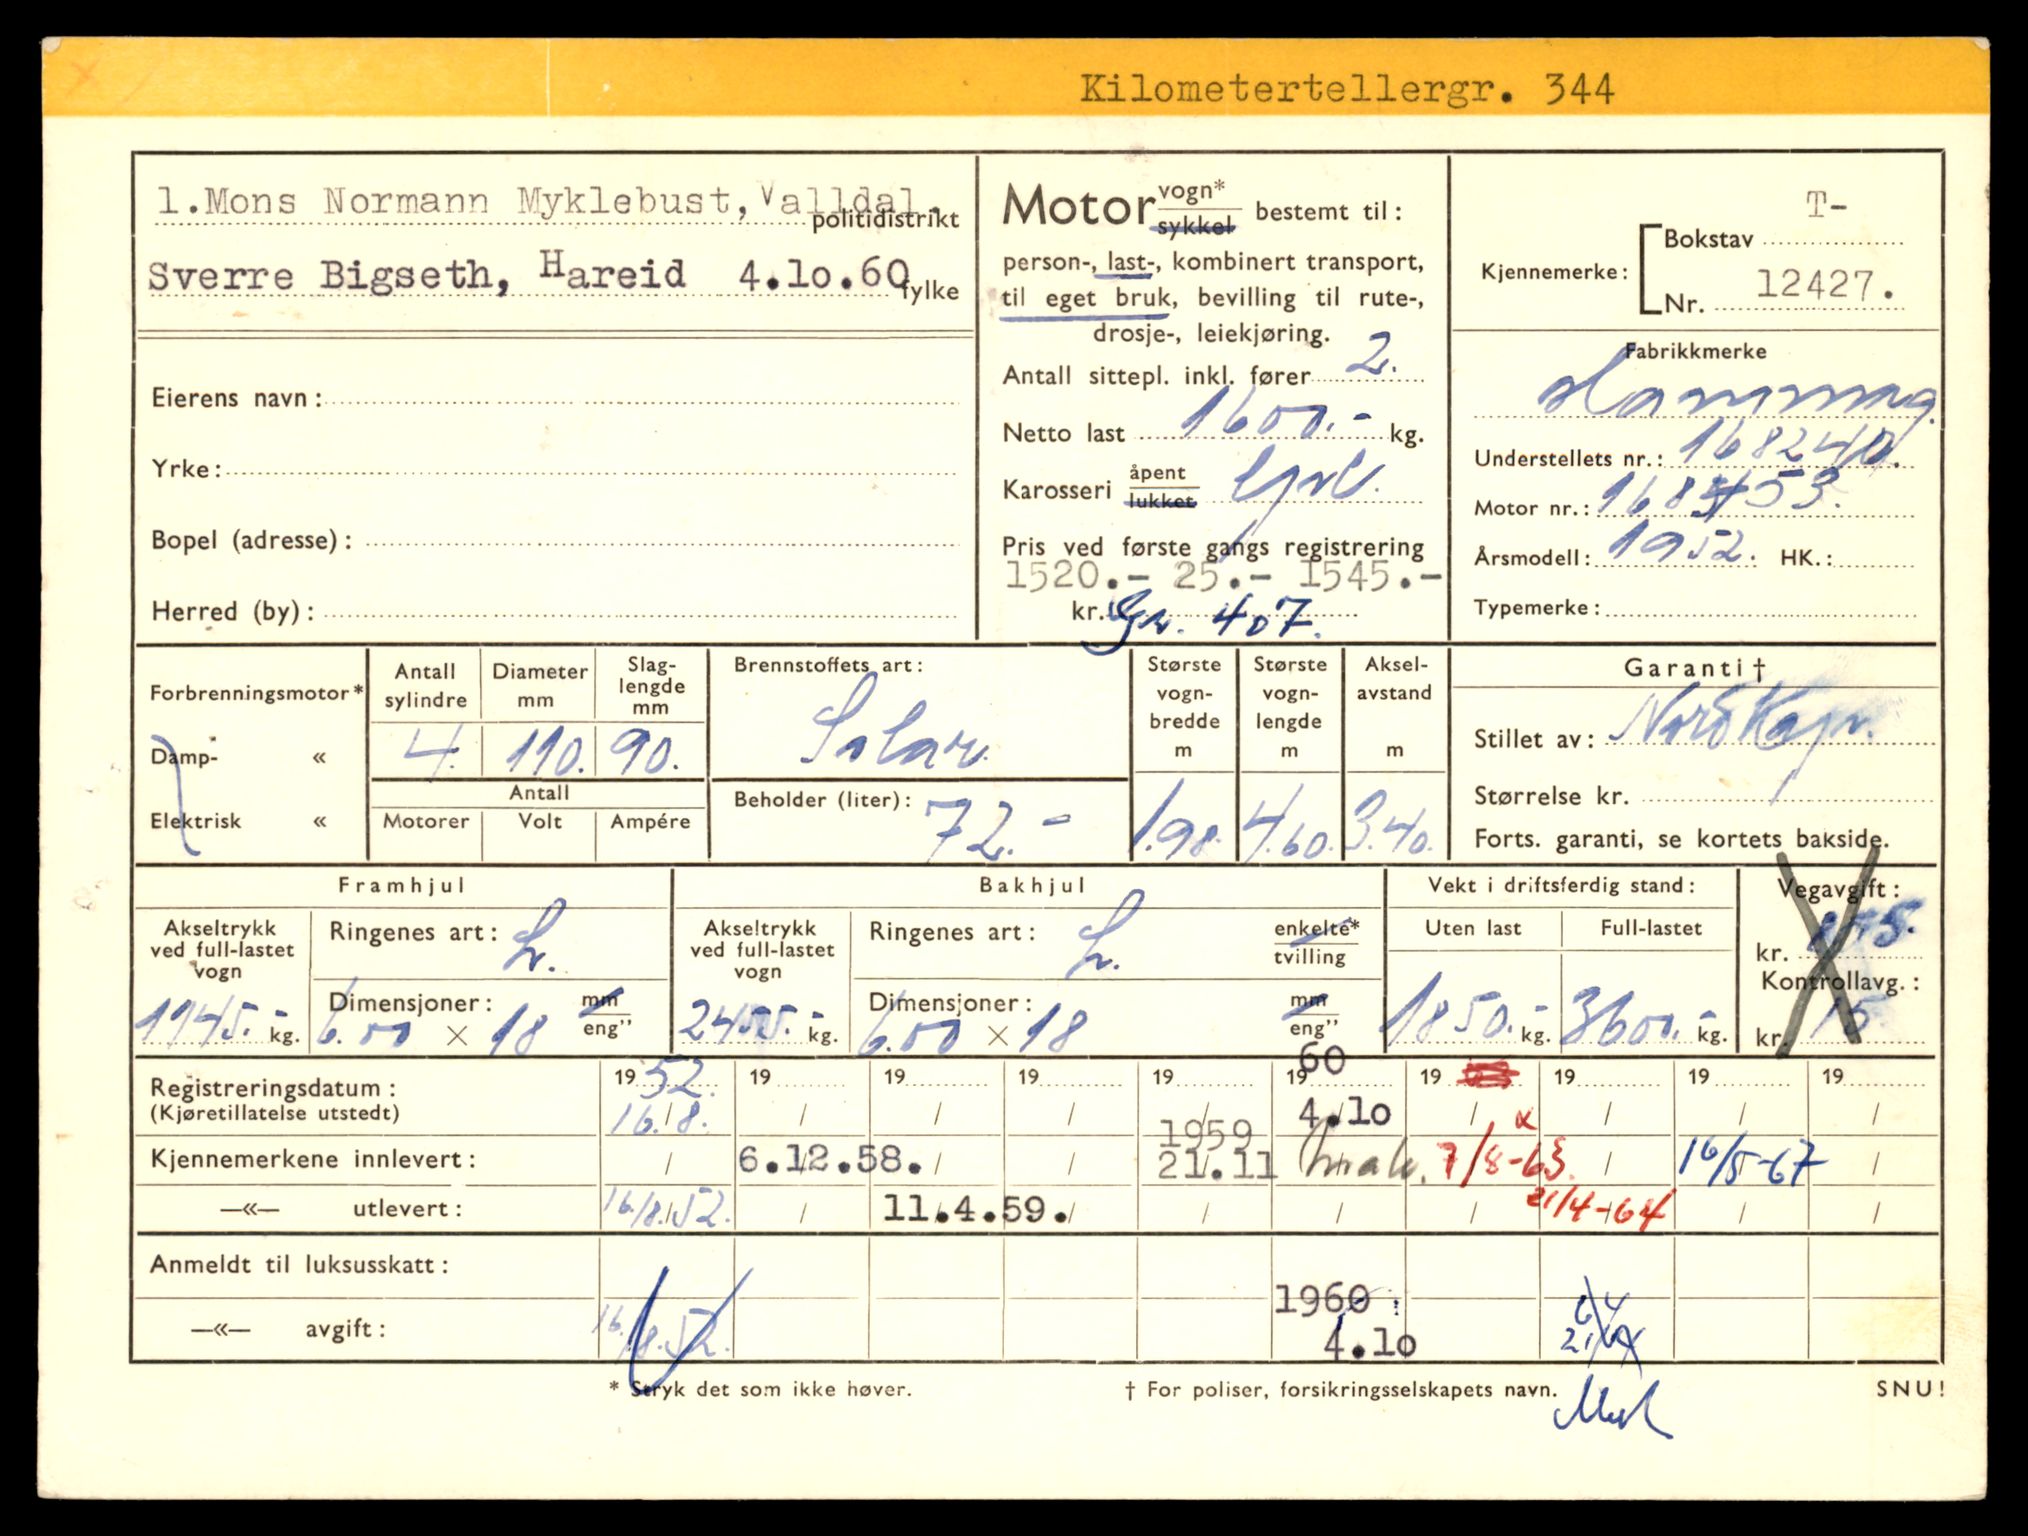 Kilometertellergr. 344
1.Mons Normann Myklebust, Valldal.
politidistrikt
Sverre Bigseth, Hareid 4.10.60
fylke
Eierens navn:
Yrke:
Bopel (adresse):
Herred (by):
Motor vogn* sykkel bestemt til:
person-, last-, kombinert transport,
til eget bruk, bevilling til rute-,
drosje-, leiekjøring.
Antall sittepl. inkl. fører 2.
Netto last 1600.- kg.
Karosseri åpent lukket
Pris ved første gangs registrering
1520.- 25.- 1545.-
kr. Gr. 407.
Kjennemerke: Bokstav T-
Nr. 12427.
Fabrikkmerke
Hanomag
Understellets nr.: 168240.
Motor nr.:
Årsmodell: 1952. HK.:
Typemerke:
Forbrenningsmotor*
Damp- «
Elektrisk «
Antall sylindre 4.
Diameter mm 110.
Slaglengde mm 90.
Antall
Motorer Volt Ampére
Brennstoffets art:
Solar.
Beholder (liter): 72.-
Største vognbredde m 1.98.
Største vognlengde m 4.60.
Akselavstand m 3.40.
Garanti †
Stillet av: Nordkap.
Størrelse kr.
Forts. garanti, se kortets bakside.
Framhjul
Akseltrykk ved full-lastet vogn 1145.- kg.
Ringenes art: L.
Dimensjoner: mm eng”
6.00 × 18
Bakhjul
Akseltrykk ved full-lastet vogn 2455.- kg.
Ringenes art: L. enkelte* tvilling
Dimensjoner: mm eng”
6.00 × 18
Vekt i driftsferdig stand:
Uten last Full-lastet
1850.- kg. 3600.- kg.
Vegavgift:
kr.
Kontrollavg.:
kr. 15
Registreringsdatum: 19 52. 19 19 19 19 19 60 19 19 19 19
(Kjøretillatelse utstedt) 16.8. 4.10
Kjennemerkene innlevert: 6.12.58. 1959 21.11 7/8-63. 16/5-67
—«— utlevert: 16/8.52. 11.4.59. 21/4-64
Anmeldt til luksusskatt:
—«— avgift: 16/8.52. 1960 4.10
* Stryk det som ikke høver.
† For poliser, forsikringsselskapets navn.
SNU!